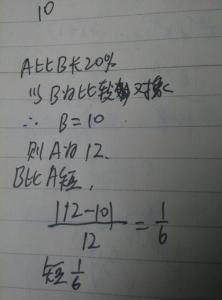 10
A比B长20%
以B为比较对象
∴ B=10
则A为12.
B比A短,
|12-10|
12
= 1/6
短 1/6